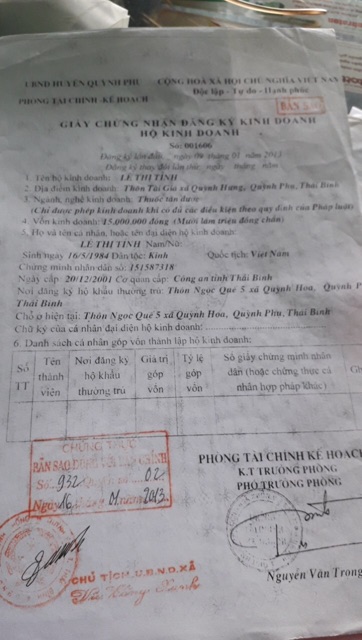 UBND HUYỆN QUỲNH PHỤ
PHÒNG TÀI CHÍNH -KẾ HOẠCH
CỘNG HOÀ XÃ HỘI CHỦ NGHĨA VIỆT NAM
Độc lập - Tự do - Hạnh phúc
BẢN SAO
GIẤY CHỨNG NHẬN ĐĂNG KÝ KINH DOANH
HỘ KINH DOANH
Số: 001606
Đăng ký lần đầu, ngày 01 tháng 01 năm 2013
Đăng ký thay đổi lần thứ: ngày tháng năm
1. Tên hộ kinh doanh: LÊ THỊ TÌNH
2. Địa điểm kinh doanh: Thôn Tài Giá xã Quỳnh Hưng, Quỳnh Phụ, Thái Bình
3. Ngành, nghề kinh doanh: Thuốc tân dược
(Chỉ được phép kinh doanh khi có đủ các điều kiện theo quy định của Pháp luật)
4. Vốn kinh doanh: 15.000.000 đồng (Mười lăm triệu đồng chẵn)
5. Họ và tên cá nhân, hoặc tên đại diện hộ kinh doanh:
LÊ THỊ TÌNH Nam/Nữ:
Sinh ngày 16/5/1984 Dân tộc: Kinh Quốc tịch: Việt Nam
Chứng minh nhân dân số: 151587318
Ngày cấp 20/12/2001 Cơ quan cấp: Công an tỉnh Thái Bình
Nơi đăng ký hộ khẩu thường trú: Thôn Ngọc Quế 5 xã Quỳnh Hoa, Quỳnh P
Thái Bình
Chỗ ở hiện tại: Thôn Ngọc Quế 5 xã Quỳnh Hoa, Quỳnh Phụ, Thái Bình
Chữ ký của cá nhân đại diện hộ kinh doanh:
6. Danh sách cá nhân góp vốn thành lập hộ kinh doanh:
Số TT
Tên thành viên
Nơi đăng ký hộ khẩu thường trú
Giá trị góp vốn
Tỷ lệ góp vốn
Số giấy chứng minh nhân dân (hoặc chứng thực cá nhân hợp pháp khác)
Gh
CHỨNG THỰC
BẢN SAO ĐÚNG VỚI BẢN CHÍNH
Số: 932 02
Ngày 16 tháng 01 năm 2013
CHỦ TỊCH U.B.N.D.XÃ
PHÒNG TÀI CHÍNH KẾ HOẠCH
K.T TRƯỞNG PHÒNG
PHÓ TRƯỞNG PHÒNG
Nguyễn Văn Trong